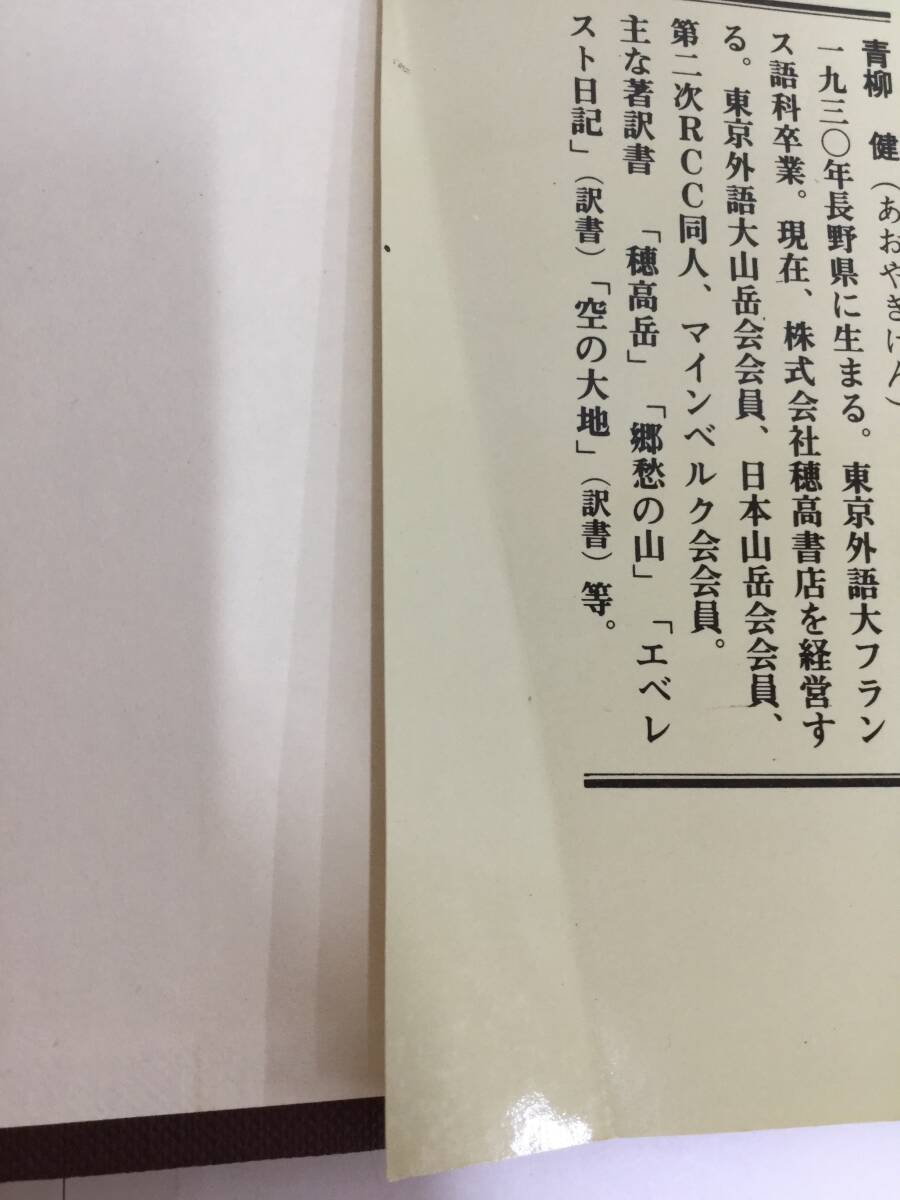 青柳　健（あおやぎけん）
一九三〇年長野県に生まる。東京外語大フラン
ス語科卒業。現在、株式会社穂高書店を経営す
る。東京外語大山岳会会員、日本山岳会会員、
第二次ＲＣＣ同人、マインベルク会会員。
主な著訳書　「穂高岳」「郷愁の山」「エベレ
スト日記」（訳書）「空の大地」（訳書）等。